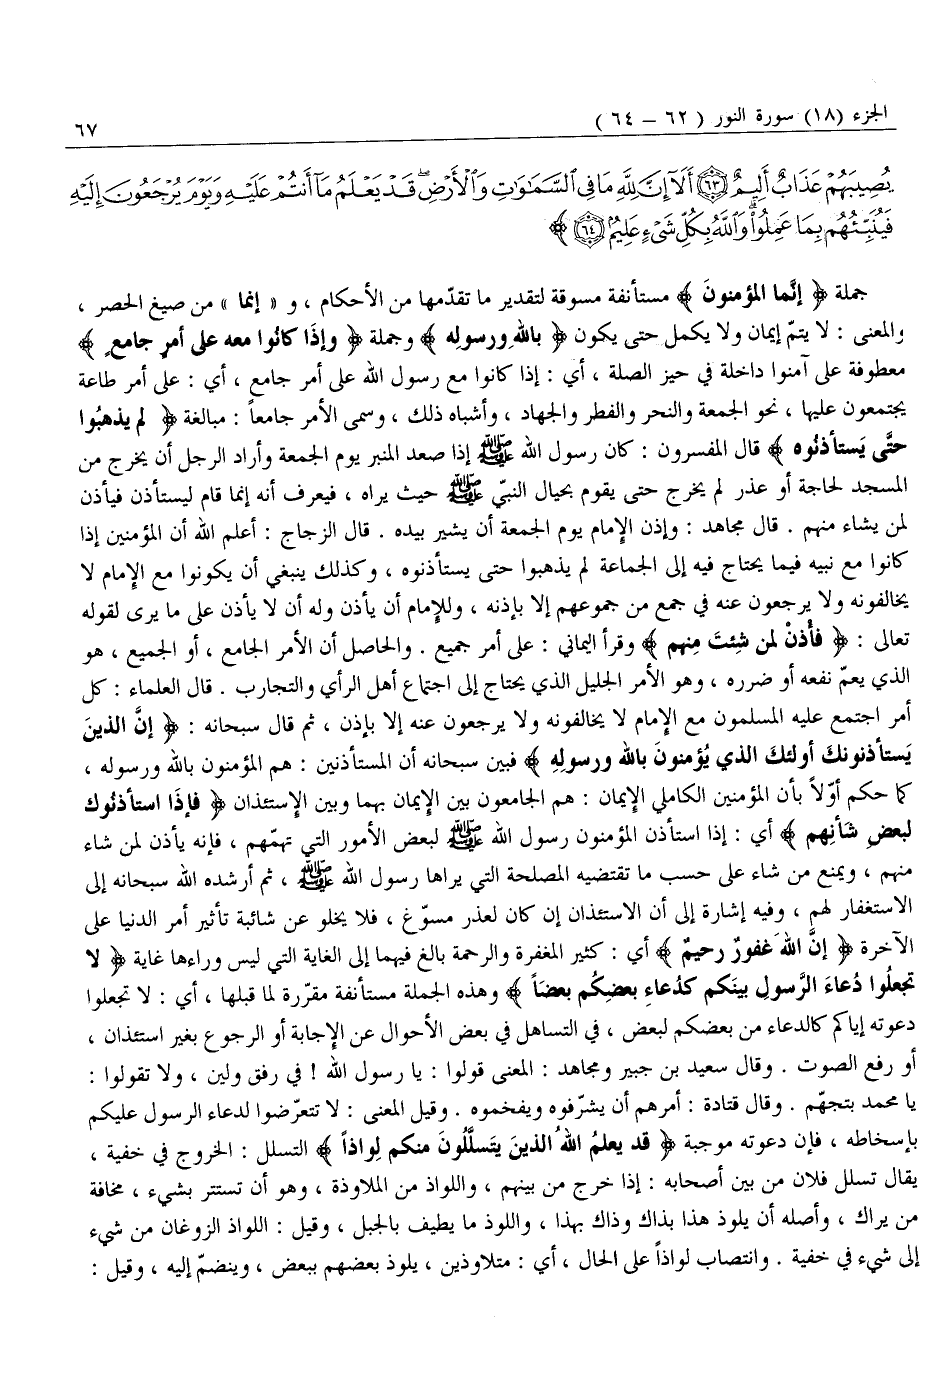 الجزء (١٨) سورة النور ( ٦٢ – ٦٤ ) ٦٧
يُصِيبَهُمْ عَذَابٌ أَلِيمٌ ﴿٦٣﴾ أَلَآ إِنَّ لِلَّهِ مَا فِى ٱلسَّمَٰوَٰتِ وَٱلْأَرْضِ ۖ قَدْ يَعْلَمُ مَآ أَنتُمْ عَلَيْهِ وَيَوْمَ يُرْجَعُونَ إِلَيْهِ
فَيُنَبِّئُهُم بِمَا عَمِلُوا۟ ۗ وَٱللَّهُ بِكُلِّ شَىْءٍ عَلِيمٌۢ ﴿٦٤﴾ ﴾
جملة ﴿ إنَّما المؤمنونَ ﴾ مستأنفة مسوقة لتقدير ما تقدّمها من الأحكام ، و « إنما » من صيغ الحصر ،
والمعنى : لا يتمّ إيمان ولا يكمل حتى يكون ﴿ باللهِ ورسولِه ﴾ وجملة ﴿ وإذَا كانُوا معه على أمرٍ جامع ٍ ﴾
معطوفة على آمنوا داخلة في حيز الصلة ، أي : إذا كانوا مع رسول الله على أمر جامع ، أي : على أمر طاعة
يجتمعون عليها ، نحو الجمعة والنحر والفطر والجهاد ، وأشباه ذلك ، وسمى الأمر جامعاً : مبالغة ﴿ لم يذهبُوا
حتَّى يَستأذنُوه ﴾ قال المفسرون : كان رسول الله ﷺ إذا صعد المنبر يوم الجمعة وأراد الرجل أن يخرج من
المسجد لحاجة أو عذر لم يخرج حتى يقوم بحيال النبيّ ﷺ حيث يراه ، فيعرف أنه إنما قام ليستأذن فيأذن
لمن يشاء منهم . قال مجاهد : وإذن الإمام يوم الجمعة أن يشير بيده . قال الزجاج : أعلم الله أن المؤمنين إذا
كانوا مع نبيه فيما يحتاج فيه إلى الجماعة لم يذهبوا حتى يستأذنوه ، وكذلك ينبغي أن يكونوا مع الإمام لا
يخالفونه ولا يرجعون عنه في جمع من جموعهم إلا بإذنه ، وللإمام أن يأذن وله أن لا يأذن على ما يرى لقوله
تعالى : ﴿ فأْذنْ لمن شِئتَ مِنهم ﴾ وقرأ اليماني : على أمر جميع . والحاصل أن الأمر الجامع ، أو الجميع ، هو
الذي يعمّ نفعه أو ضرره ، وهو الأمر الجليل الذي يحتاج إلى اجتماع أهل الرأي والتجارب . قال العلماء : كل
أمر اجتمع عليه المسلمون مع الإمام لا يخالفونه ولا يرجعون عنه إلا بإذن ، ثم قال سبحانه : ﴿ إنَّ الذينَ
يَستأذنونكَ أولئكَ الذي يُؤمنونَ بالله ورسولِهِ ﴾ فبين سبحانه أن المستأذنين : هم المؤمنون بالله ورسوله ،
كما حكم أوّلاً بأن المؤمنين الكاملي الإيمان : هم الجامعون بين الإيمان بهما وبين الإستئذان ﴿ فإذَا استأذنُوك
لبعضِ شَأنِهم ﴾ أي : إذا استأذن المؤمنون رسول الله ﷺ لبعض الأمور التي تهمّهم ، فإنه يأذن لمن شاء
منهم ، ويمنع من شاء على حسب ما تقتضيه المصلحة التي يراها رسول الله ﷺ ، ثم أرشده الله سبحانه إلى
الاستغفار لهم ، وفيه إشارة إلى أن الاستئذان إن كان لعذر مسوّغ ، فلا يخلو عن شائبة تأثير أمر الدنيا على
الآخرة ﴿ إنَّ اللهَ غفورٌ رحيمٌ ﴾ أي : كثير المغفرة والرحمة بالغ فيهما إلى الغاية التي ليس وراءها غاية ﴿ لا
تجعلُوا دُعاءَ الرَّسولِ بينَكم كدُعاءِ بعضِكُم بعضَاً ﴾ وهذه الجملة مستأنفة مقرّرة لما قبلها ، أي : لا تجعلوا
دعوته إياكم كالدعاء من بعضكم لبعض ، في التساهل في بعض الأحوال عن الإجابة أو الرجوع بغير استئذان ،
أو رفع الصوت . وقال سعيد بن جبير ومجاهد : المعنى قولوا : يا رسول الله ! في رفق ولين ، ولا تقولوا :
يا محمد بتجهّم . وقال قتادة : أمرهم أن يشرّفوه ويفخموه . وقيل المعنى : لا تتعرّضوا لدعاء الرسول عليكم
بإسخاطه ، فإن دعوته موجبة ﴿ قد يعلمُ اللهُ الذينَ يَتسلَّلُونَ منكم لِواذاً ﴾ التسلل : الخروج في خفية ،
يقال تسلل فلان من بين أصحابه : إذا خرج من بينهم ، واللواذ من الملاوذة ، وهو أن تستتر بشيء ، مخافة
من يراك ، وأصله أن يلوذ هذا بذاك وذاك بهذا ، واللوذ ما يطيف بالجبل ، وقيل : اللواذ الزوغان من شيء
إلى شيء في خفية . وانتصاب لواذاً على الحال ، أي : متلاوذين ، يلوذ بعضهم ببعض ، وينضمّ إليه ، وقيل :